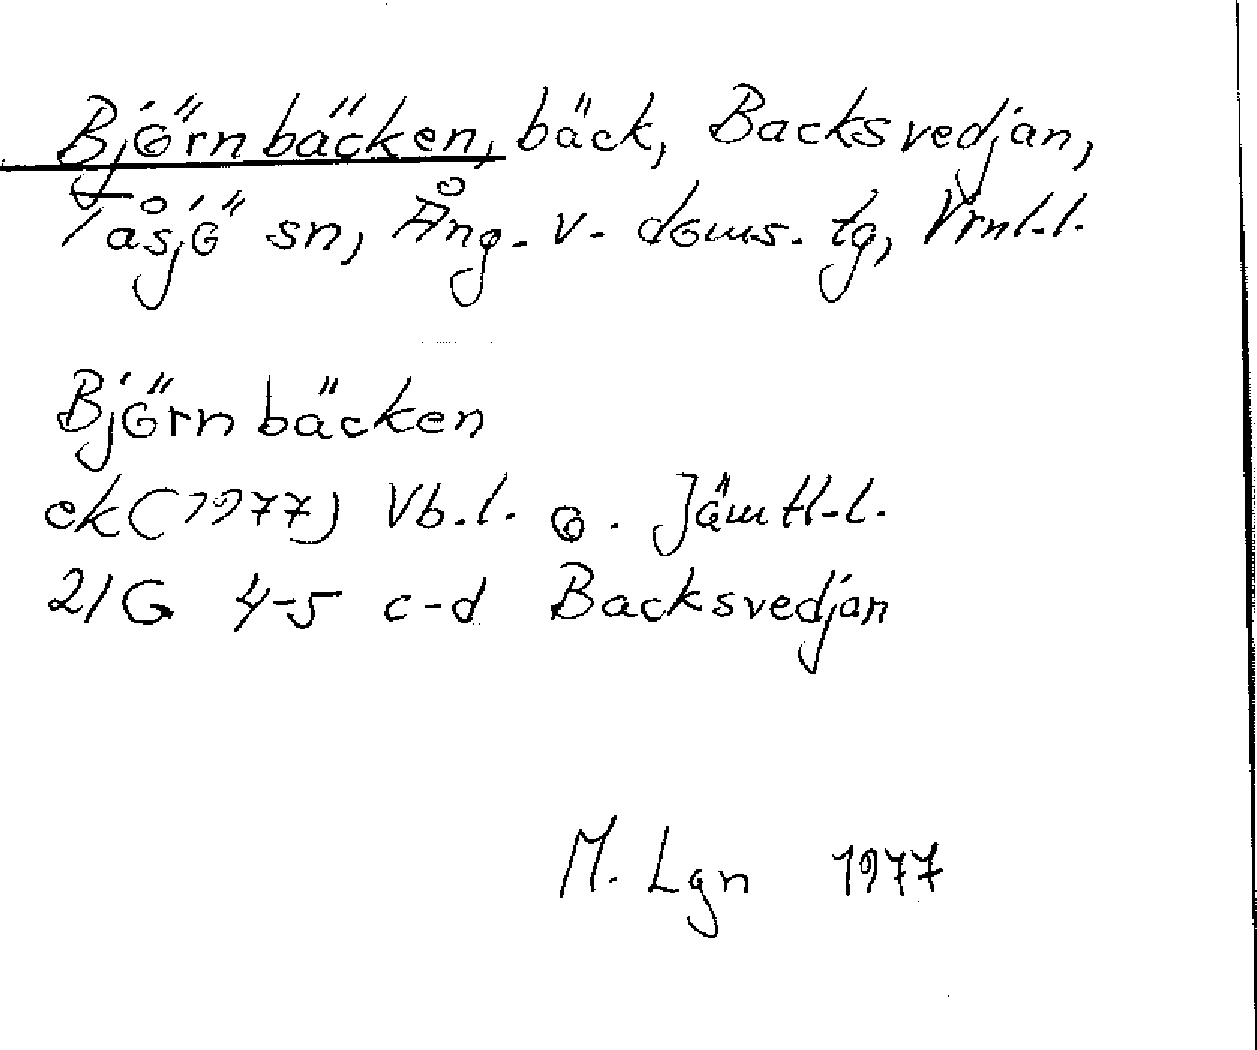 Björnbäcken, bäck, Backsvedjan,
Tåsjö sn, Ång. v. doms. tg, Vrnl.l.
Björnbäcken
ek (1977) Vb.l. o. Jämtl.l.
21G 4-5 c-d Backsvedjan
M. Lgn 1977